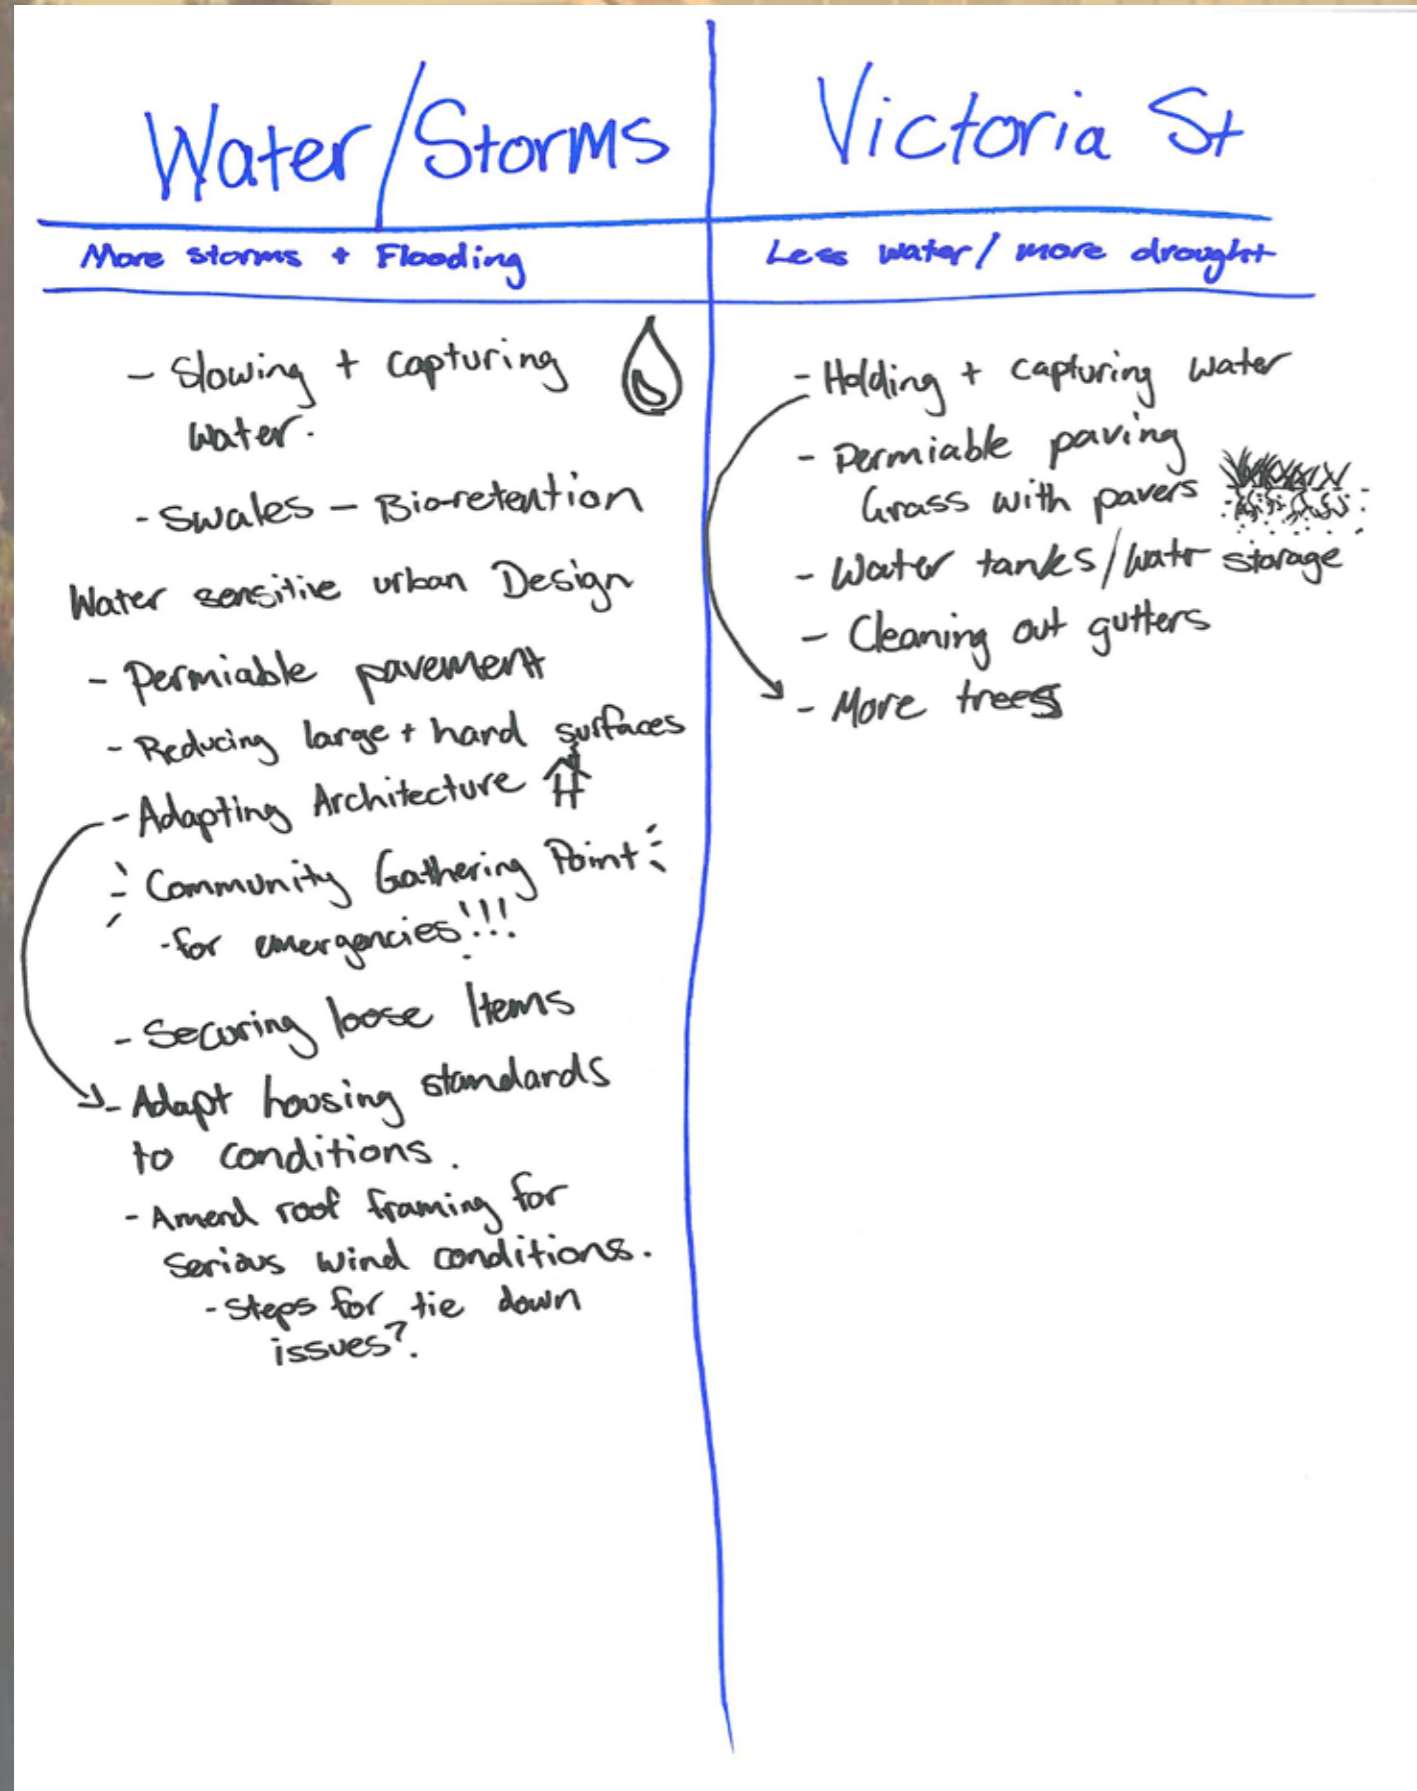 Water/Storms
More storms + Flooding
- Slowing + capturing
water.
- Swales - Bio-retention
Water sensitive urban Design
- Permiable pavement
- Reducing large + hard surfaces
- Adapting Architecture
Community Gathering Point
- for emergencies!!!
- Securing loose Items
- Adapt housing standards
to conditions.
- Amend roof framing for
serious wind conditions.
- Steps for tie down
issues?
Victoria St
Less water / more drought
- Holding + capturing water
- Permiable paving
Grass with pavers
- Water tanks/watr storage
- Cleaning out gutters
- More trees